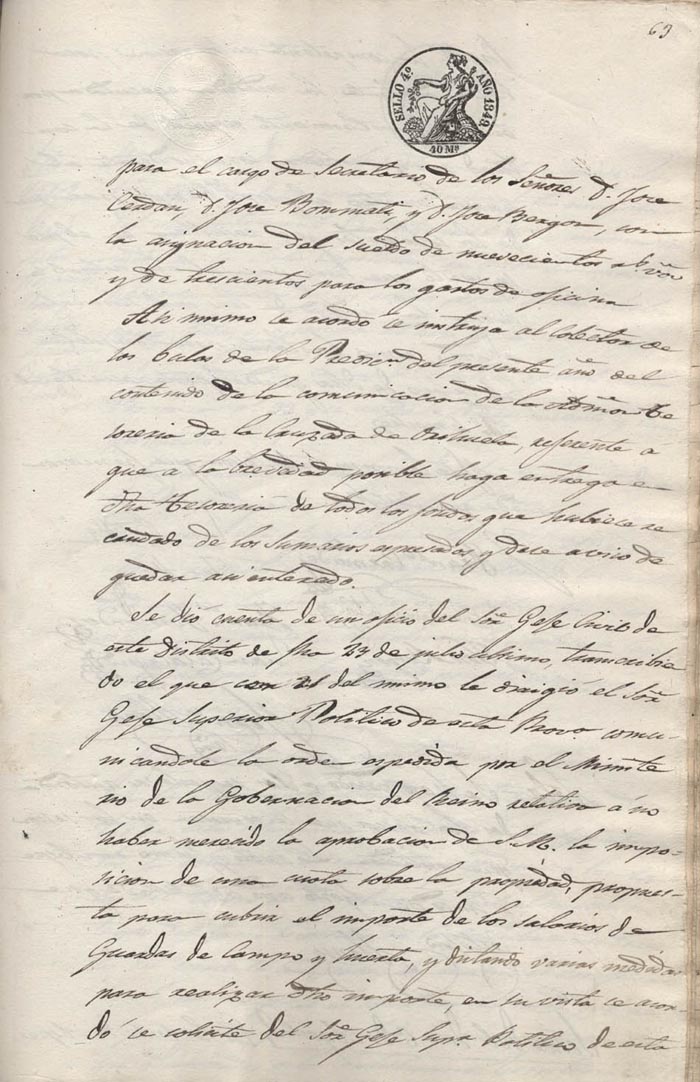 69
SELLO 4º AÑO 1849.
40 Mˢ
para el cargo de Secretario de los Señores D. Jose
Cerdan, D. Jose Bommati, y D. Jose Berger, con
la asignacion del sueldo de nuevecientos rˢ vón
y de trescientos para los gastos de oficina
Asi mimo se acordo se instruya al Colector de
las bulas de la Predicⁿ del presente año del
contenido de la comunicacion de la Admón Te
soreria de la Cruzada de Orihuela, referente á
que a la brevedad posible haga entrega en
dha Tesoreria de todos los fondos que hubiese re
caudado de los Sumarios espresados, y dé aviso de
quedar asi enterado.
Se dió cuenta de un oficio del Sōr Gefe Civil de
este distrito de fha 23 de julio ultimo, transcribien
do el que con 21 del mimo le dirigió el Sōr
Gefe Superior Politico de esta Provª comu-
nicandole la orden espedida por el Ministe
rio de la Gobernacion del Reino relativa á no
haber merecido la aprobacion de S.M. la impo-
sicion de una cuota sobre la propiedad, propues-
ta para cubrir el importe de los salarios de
Guardas de campo y huerta, y dictando varias medidas
para realizar dho importe, en su vista se acor-
dó se solicite del Sōr Gefe Supr Politico de esta